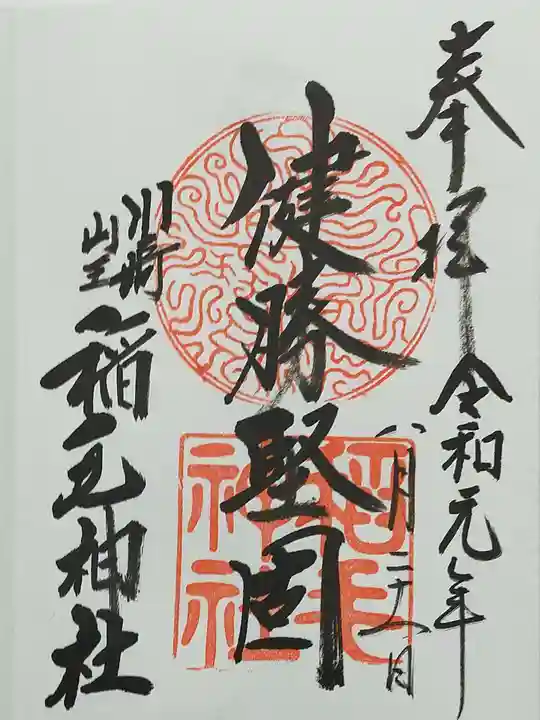 奉拝
令和元年
八月二十八日
健勝堅固
川崎
山王
稲毛神社
稲毛神社